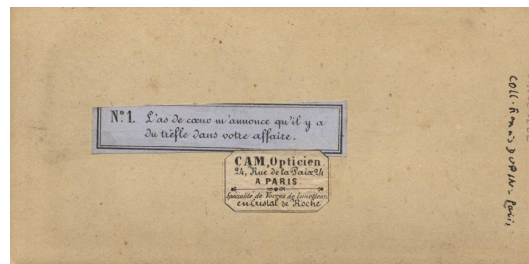 Nº 1. L'as de cœur m'annonce qu'il y a
du trèfle dans votre affaire.
CAM, Opticien
24, Rue de la Paix 24
A PARIS
Spécialité de Verres de Lunettes
en Cristal de Roche
Coll. Francis DUPIN - Paris